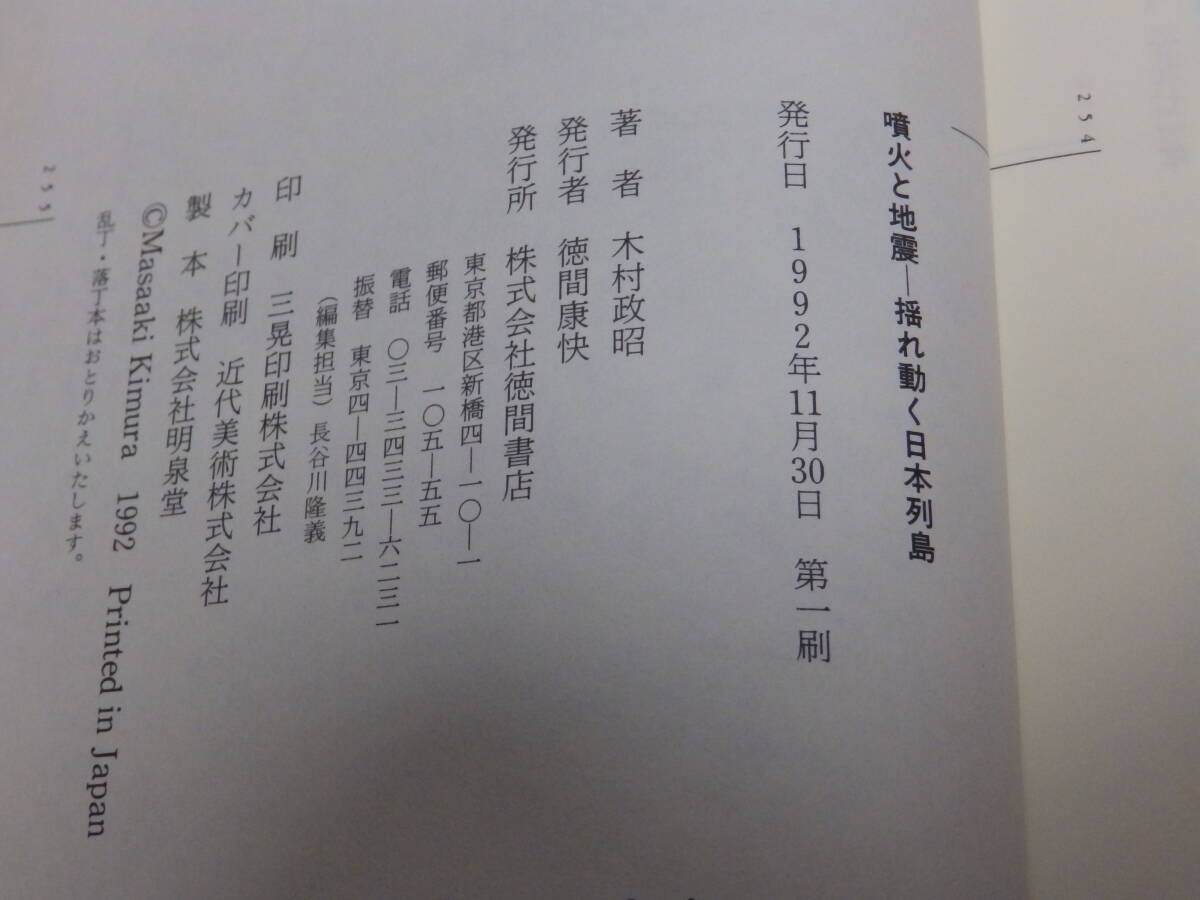 254
噴火と地震―揺れ動く日本列島
発行日 1992年11月30日 第一刷
著者 木村政昭
発行者 徳間康快
発行所 株式会社徳間書店
東京都港区新橋四―一〇―一
郵便番号 一〇五―五五
電話 〇三―三四三三―六二三一
振替 東京四―四四三九二
(編集担当)長谷川隆義
印刷 三晃印刷株式会社
カバー印刷 近代美術株式会社
製本 株式会社明泉堂
©Masaaki Kimura 1992 Printed in Japan
乱丁・落丁本はおとりかえいたします。
255